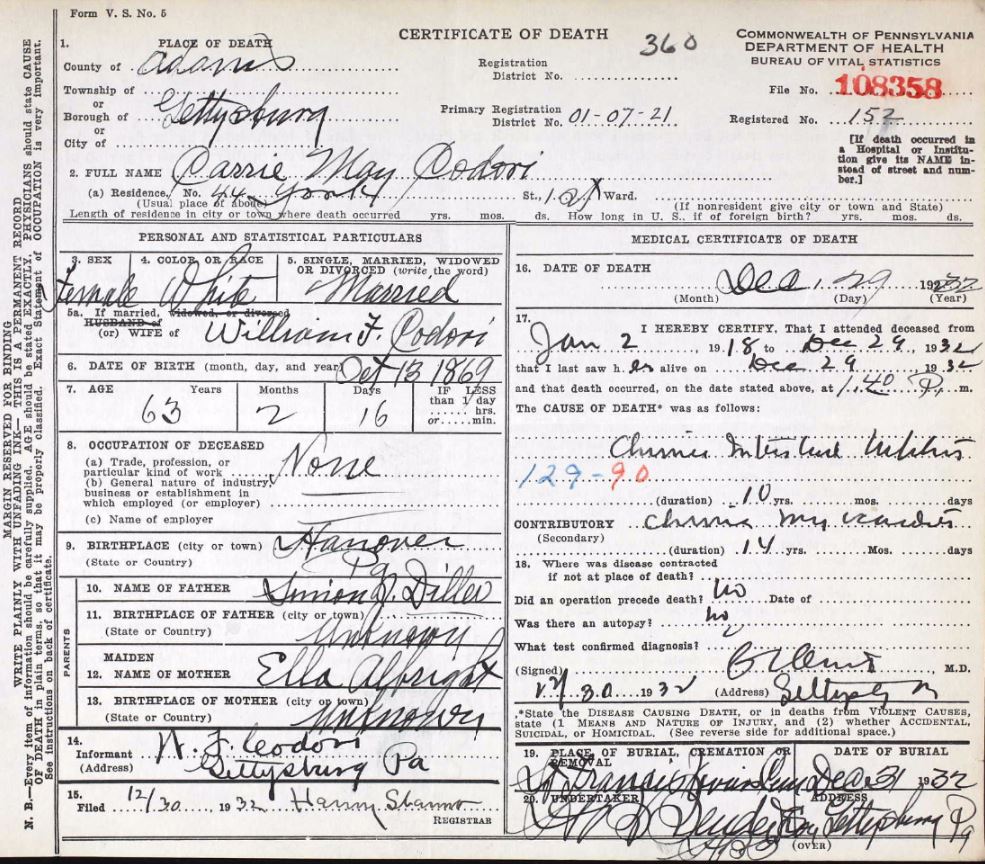 Form V. S. No. 5
CERTIFICATE OF DEATH
360
COMMONWEALTH OF PENNSYLVANIA
DEPARTMENT OF HEALTH
BUREAU OF VITAL STATISTICS
1. PLACE OF DEATH
County of Adams
Township of
or
Borough of Gettysburg
or
City of
Registration
District No.
Primary Registration
District No. 01-07-21
File No. 108358
Registered No. 152
[If death occurred in
a Hospital or Institu-
tion give its NAME in-
stead of street and num-
ber.]
2. FULL NAME Carrie May Codori
(a) Residence. No. 44 York St., 1st Ward.
(Usual place of abode) (If nonresident give city or town and State)
Length of residence in city or town where death occurred yrs. mos. ds. How long in U. S., if of foreign birth? yrs. mos. ds.
PERSONAL AND STATISTICAL PARTICULARS
3. SEX
Female
4. COLOR OR RACE
White
5. SINGLE, MARRIED, WIDOWED
OR DIVORCED (write the word)
Married
5a. If married, widowed, or divorced
HUSBAND of
(or) WIFE of William F. Codori
6. DATE OF BIRTH (month, day, and year) Oct 13 1869
7. AGE Years Months Days IF LESS
than 1 day
hrs.
or min.
63 2 16
8. OCCUPATION OF DECEASED
(a) Trade, profession, or
particular kind of work None
(b) General nature of industry,
business or establishment in
which employed (or employer)
(c) Name of employer
9. BIRTHPLACE (city or town) Hanover
(State or Country) Pa
PARENTS
10. NAME OF FATHER Simon J. Diller
11. BIRTHPLACE OF FATHER (city or town)
(State or Country) Unknown
MAIDEN
12. NAME OF MOTHER Ella Albright
13. BIRTHPLACE OF MOTHER (city or town)
(State or Country) Unknown
14.
Informant W. F. Codori
(Address) Gettysburg Pa
15.
Filed 12/30 1932
REGISTRAR
MEDICAL CERTIFICATE OF DEATH
16. DATE OF DEATH
Dec. 29 1932
(Month) (Day) (Year)
17.
I HEREBY CERTIFY, That I attended deceased from
Jan 2 1918 to Dec 29, 1932
that I last saw her alive on Dec 29 1932
and that death occurred, on the date stated above, at 1.40 P. m.
The CAUSE OF DEATH* was as follows:
Chronic Interstitial Nephritis
129-90
(duration) 10 yrs. mos. days
CONTRIBUTORY Chronic Myocarditis
(Secondary)
(duration) 14 yrs. Mos. days
18. Where was disease contracted
if not at place of death?
Did an operation precede death? no Date of
Was there an autopsy? no
What test confirmed diagnosis?
(Signed) M.D.
12/30 1932 (Address) Gettysburg Pa
*State the DISEASE CAUSING DEATH, or in deaths from VIOLENT CAUSES,
state (1 MEANS AND NATURE OF INJURY, and (2) whether ACCIDENTAL,
SUICIDAL, or HOMICIDAL. (See reverse side for additional space.)
19. PLACE OF BURIAL, CREMATION OR
REMOVAL
St Francis Xavier Cem
DATE OF BURIAL
Dec 31 1932
20. UNDERTAKER
H B Bender
ADDRESS
Gettysburg Pa
(OVER)
MARGIN RESERVED FOR BINDING
WRITE PLAINLY WITH UNFADING INK—THIS IS A PERMANENT RECORD
N. B.—Every item of information should be carefully supplied. AGE should be stated EXACTLY. PHYSICIANS should state CAUSE
OF DEATH in plain terms, so that it may be properly classified. Exact Statement of OCCUPATION is very important.
See instructions on back of certificate.